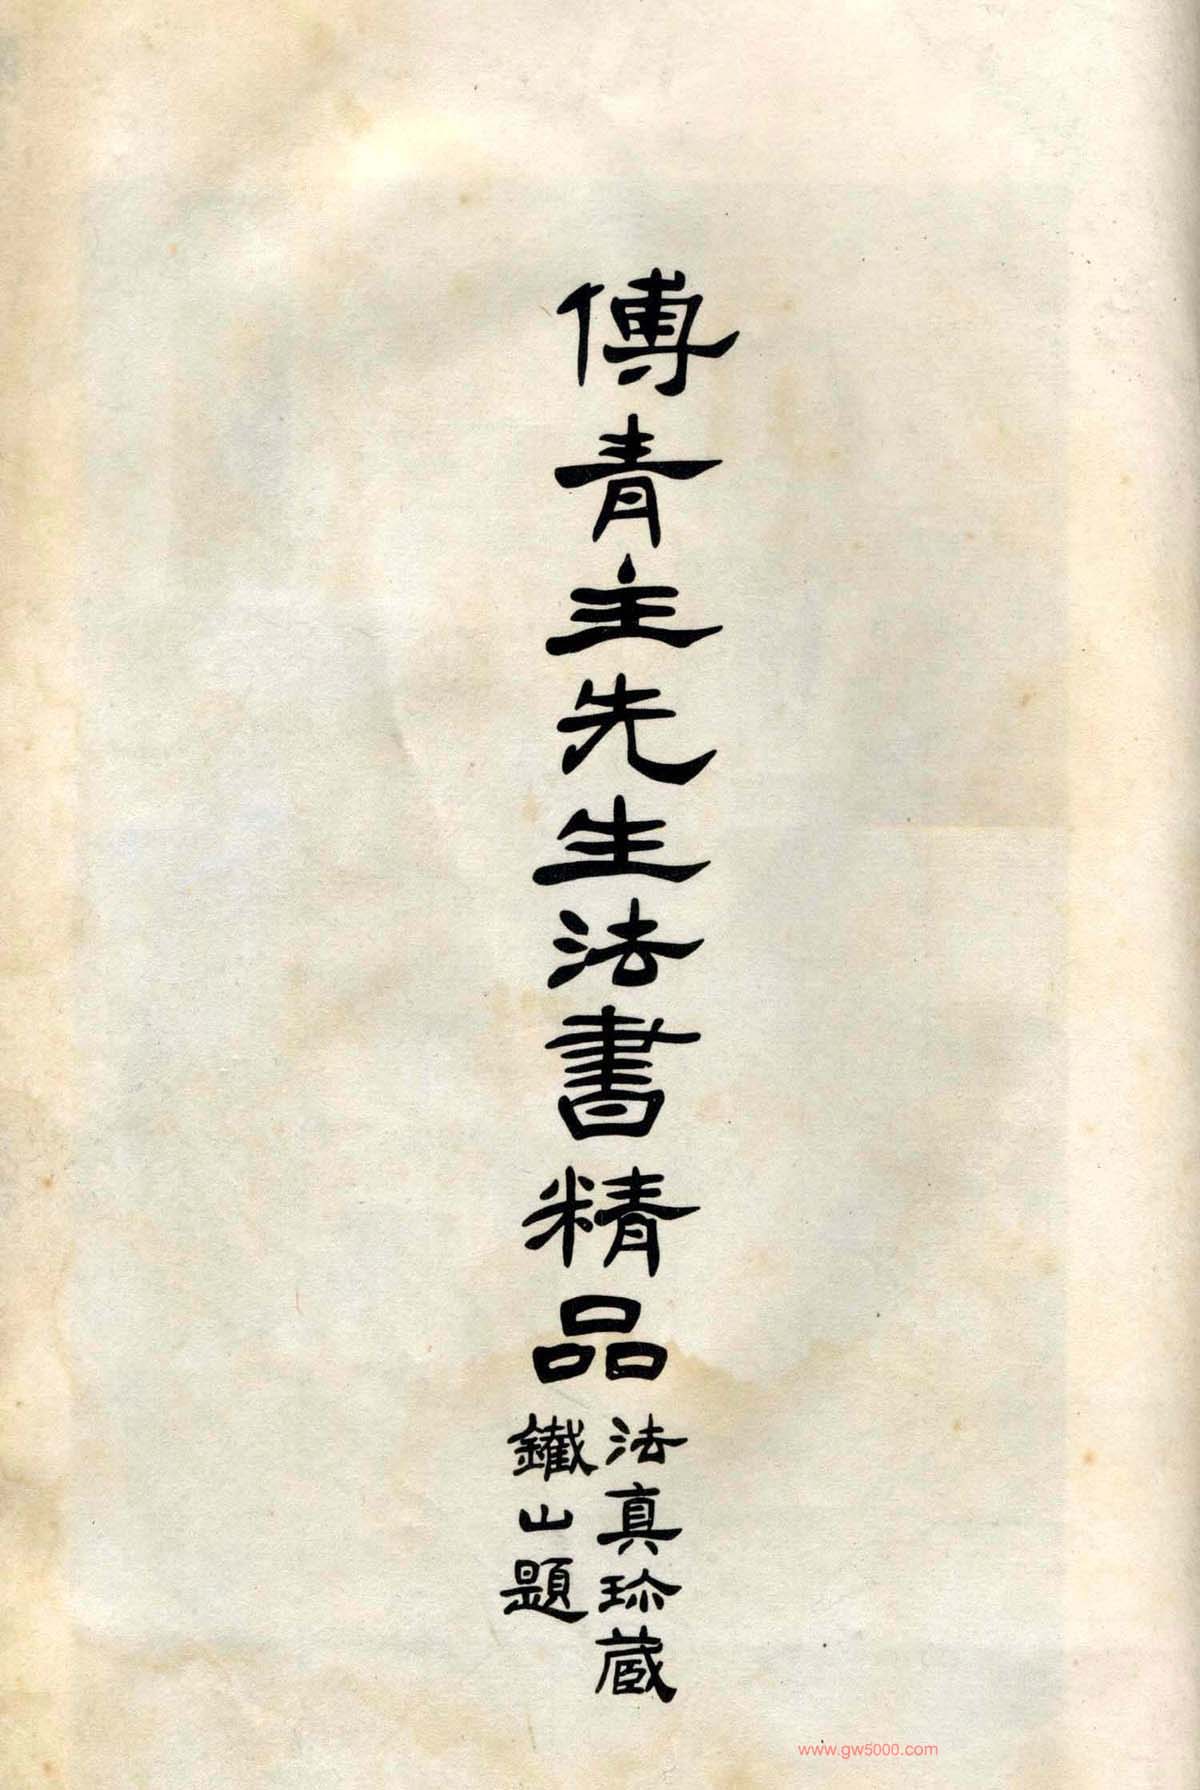 傅青主先生法書精品
法真珎蔵
鐵山題
www.gw5000.com